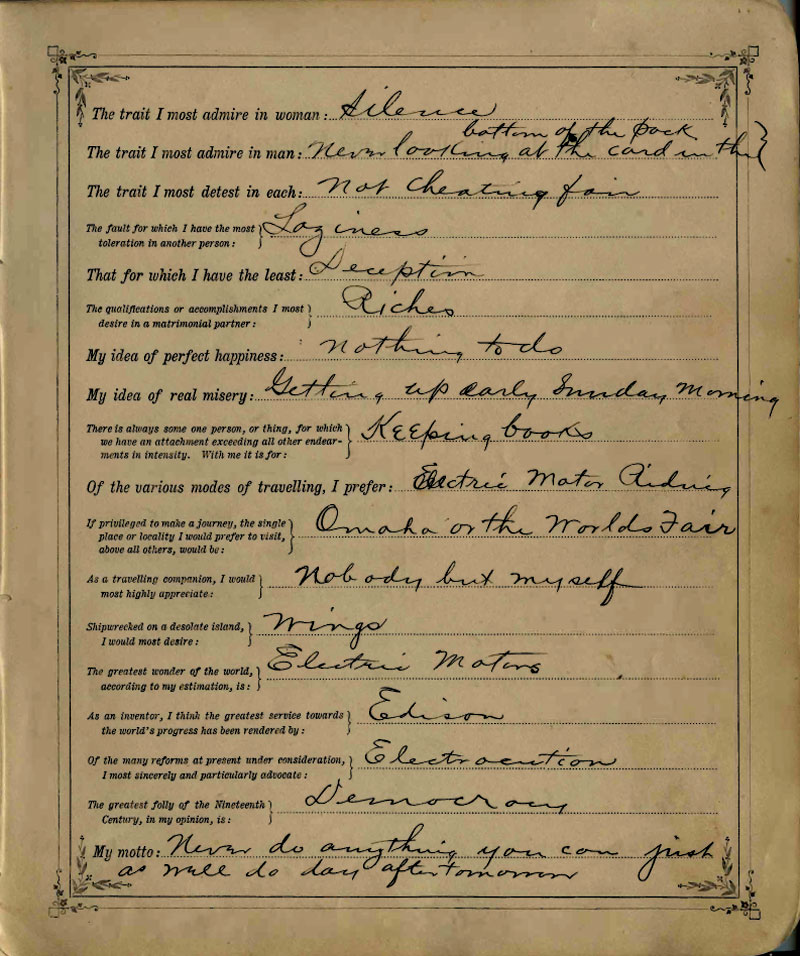 The trait I most admire in woman: Silence
bottom of the Pack
The trait I most admire in man: Never looking at the card in the }
The trait I most detest in each: Not Cheating fair
The fault for which I have the most } Laziness
toleration in another person:
That for which I have the least: Deception
The qualifications or accomplishments I most } Riches
desire in a matrimonial partner:
My idea of perfect happiness: Nothing to do
My idea of real misery: Getting up early Sunday Morning
There is always some one person, or thing, for which
we have an attachment exceeding all other endear- } Keeping books
ments in intensity. With me it is for:
Of the various modes of travelling, I prefer: Electric Motor Riding
If privileged to make a journey, the single
place or locality I would prefer to visit, } Omaha or the Worlds Fair
above all others, would be:
As a travelling companion, I would } Nobody but myself
most highly appreciate:
Shipwrecked on a desolate island, } Wings
I would most desire:
The greatest wonder of the world, } Electric Motors
according to my estimation, is:
As an inventor, I think the greatest service towards } Edison
the world's progress has been rendered by:
Of the many reforms at present under consideration, } Electrocution
I most sincerely and particularly advocate:
The greatest folly of the Nineteenth } Democracy
Century, in my opinion, is:
My motto: Never do anything you can just
as well do day after tomorrow